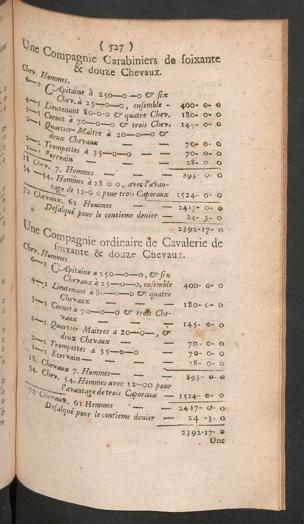 ( 527 )
Une Compagnie Carabiniers de soixante
& douze Chevaux.
Chev. Hommes.
6—1 Capitaine à 250—0—0 & six
Chev. à 25—0—0, ensemble - 400- 0- 0
4—1 Lieutenant 80-0-0 & quatre Chev. 180- 0- 0
3—1 Cornet à 70—0—0 & trois Chev. 145- 0- 0
2—1 Quartier-Maître à 20—0—0 &
deux Chevaux — — 70- 0- 0
2—2 Trompettes à 35—0—0 — — 70- 0- 0
1—1 Escrivain — — — 28- 0- 0
18 Chev. 7. Hommes — — 893- 0- 0
54—54. Hommes à 28 0 0, avec l'avan-
tage de 12-0-0 pour trois Caporaux 1524- 0- 0
72 Chevaux. 61 Hommes — 2417- 0- 0
Desalqué pour le centieme denier — 24- 3- 0
2392-17- 0
Une Compagnie ordinaire de Cavalerie de
soixante & douze Chevaux.
Chev. Hommes.
6—1 Capitaine à 250—0—0, & six
Chevaux à 25—0—0, ensemble 400- 0- 0
4—1 Lieutenant à 80—0—0 & quatre
Chevaux — — — 180- 0- 0
3—1 Cornet à 70—0—0 & trois Che-
vaux — — — 145- 0- 0
2—1 Quartier Maitres à 20—0-, &
deux Chevaux — — 70- 0- 0
2—2 Trompettes à 35—0—0 — 70- 0- 0
1—1 Ecrivain — — — 28- 0- 0
18. Chevaux 7. Hommes — — 893- 0- 0
54. Chev. 54. Hommes avec 12-00 pour
l'avantage de trois Caporaux — 1524- 0- 0
72 Chevaux. 61 Hommes — 2417- 0- 0
Desalqué pour le centieme denier — 24 -3- 0
2392-17. 0
Une